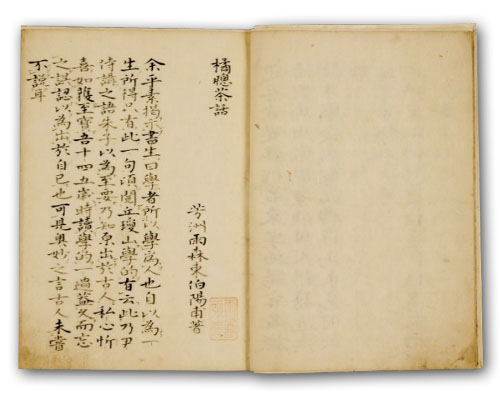 橘牕茶話
芳洲雨森東伯陽甫著
余平素揭示書生曰學者所以學為人也自以為一
生所得只有此一句頃閱丘瓊山學的有云此乃尹
侍講之語朱子以為至要乃知原出於古人私心忻
喜如獲至寶吾十四五歲時讀學的一遍益久而忘
之誤認以為出於自己也可見奧妙之言古人未嘗
不說耳